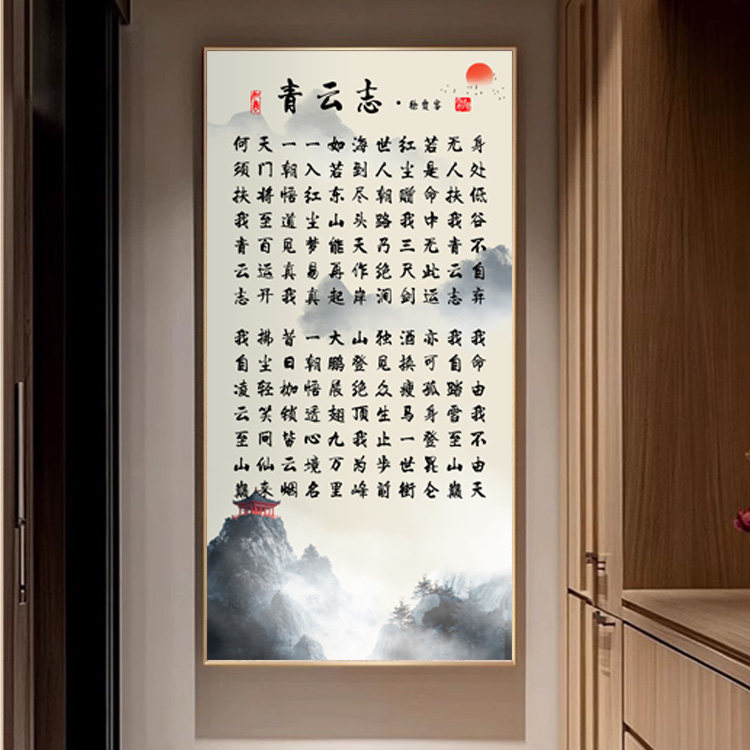 青云志·徐霞客
身处低谷不自弃
我命由我不由天
无人扶我青云志
我自踏雪至山巅
若是命中无此运
亦可孤身登昆仑
红尘赠我三尺剑
酒换瘦马一世街
世人朝路乃绝涧
独见众生止步前
海到尽头天作岸
山登绝顶我为峰
如若东山能再起
大鹏展翅九万里
一入红尘梦易真
一朝悟透心境名
一朝悟道见真我
昔日枷锁皆云烟
天门将至百运开
拂尘轻笑问仙来
何须扶我青云志
我自凌云至山巅